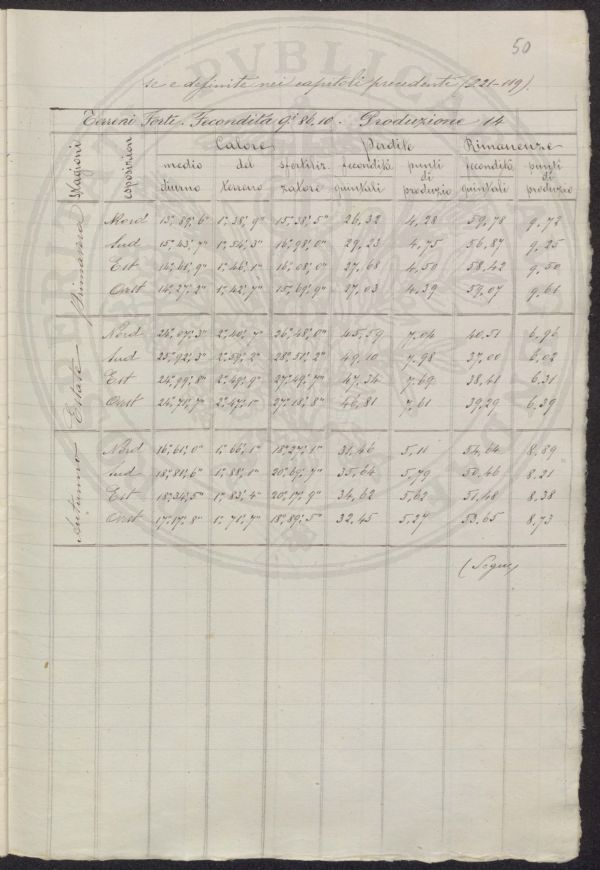 50
se e definite nei capitoli precedenti (221-119).
Terreni Forti. Fecondità q.i 86,10. Produzione 14
stagioni esposizioni Calore Perdite Rimanenze
medio del sfertiliz. fecondità punti fecondità punti
di di
diurno terreno zatore quintali produzio quintali produzio
Primavera
Nord 13°,89',6" 1°,38',9" 15°,38',5" 26,32 4,28 59,78 9,72
Sud 15°,43',7" 1°,54',3" 16°,98',0" 29,23 4,75 56,87 9,25
Est 14°,61',9" 1°,46',1" 16°,08',0" 27,68 4,50 58,42 9,50
Ovest 14°,27',2" 1°,42',7" 15°,69',9" 27,03 4,39 59,07 9,61
Estate
Nord 24°,07',3" 2°,40',7" 26°,48',0" 45,59 7,04 40,51 6,96
Sud 25°,92',3" 2°,59',2" 28°,51',2" 49,10 7,98 37,00 6,02
Est 24°,99',8" 2°,49',9" 27°,49',7" 47,34 7,69 38,41 6,31
Ovest 24°,71',7" 2°,47',1" 27°,18',8" 46,81 7,61 39,29 6,39
Autunno
Nord 16°,61',0" 1°,66',1" 18°,27',1" 31,46 5,11 54,64 8,89
Sud 18°,81',6" 1°,88',1" 20°,69',7" 35,64 5,79 50,46 8,21
Est 18°,34',5" 1°,83',4" 20°,17',9" 34,62 5,62 51,48 8,38
Ovest 17°,17',8" 1°,71',7" 18°,89',5" 32,45 5,27 53,65 8,73
(Segue)